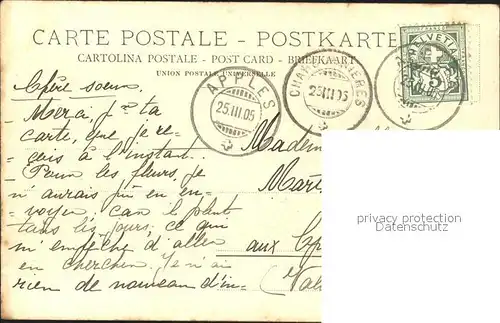 CARTE POSTALE - POSTKARTE
CARTOLINA POSTALE - POST CARD - BRIEFKAART
UNION POSTALE UNIVERSELLE
HELVETIA
5
25.III.05
23.III.05
Chère soeur
Merci pr ta
carte, que je re-
çois à l'instant.
Pour les fleurs, je
n'aurais pu en en-
voyer, car il pleut
tous les jours, ce qui
m'empêche d'aller
en chercher. Je n'ai
rien de nouveau d'in-
Madem
aux
privacy protection
Datenschutz